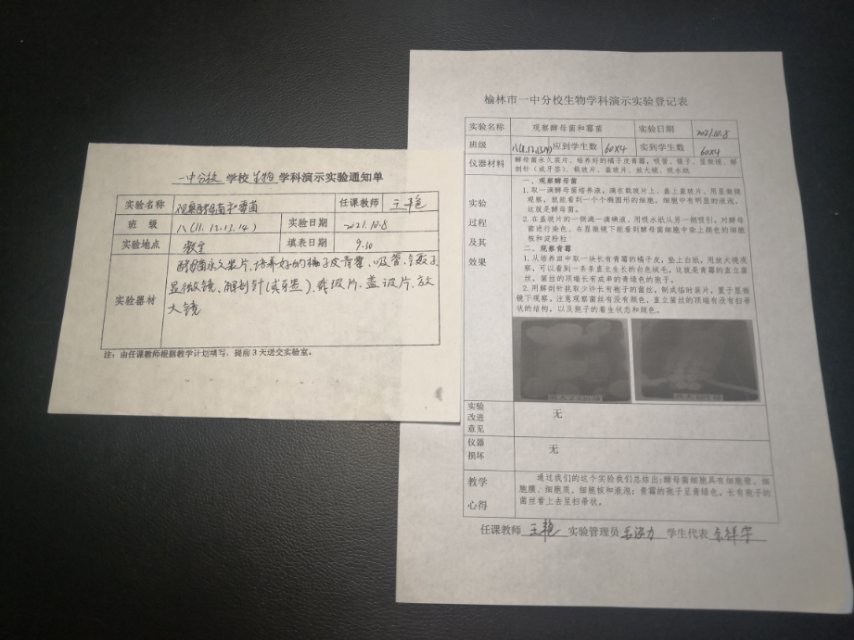 一中分校 学校 生物 学科演示实验通知单
实验名称 观察酵母菌和霉菌 任课教师 王艳
班 级 八(11.12.13.14) 实验日期 2021.10.8
实验地点 教室 填表日期 9.30
实验器材
酵母菌永久装片、培养好的橘子皮青霉、吸管、镊子、
显微镜、解剖针(或牙签)、载玻片、盖玻片、放
大镜
注:由任课教师根据教学计划填写,提前3天送交实验室。
榆林市一中分校生物学科演示实验登记表
实验名称 观察酵母菌和霉菌 实验日期 2021.10.8
班级 应到学生数 60×4 实到学生数 60×4
仪器材料
酵母菌永久装片、培养好的橘子皮青霉、吸管、镊子、显微镜、解
剖针(或牙签)、载玻片、盖玻片、放大镜、吸水纸
实验
过程
及其
效果
一、观察酵母菌
1.取一滴酵母菌培养液,滴在载玻片上,盖上盖玻片,用显微镜
观察,就能看到一个个椭圆形的细胞,细胞中有明显的液泡,
这就是酵母菌。
2.在盖玻片的一侧滴一滴碘液,用吸水纸从另一侧吸引,对酵母
菌进行染色。在显微镜下能看到酵母菌细胞中染上颜色的细胞
核和淀粉粒
二、观察青霉
1.从培养皿中取一块长有青霉的橘子皮,垫上白纸,用放大镜观
察,可以看到一条条直立生长的白色绒毛,这就是青霉的直立菌
丝。菌丝的顶端长有成串的青绿色的孢子。
2.用解剖针挑取少许长有孢子的菌丝,制成临时装片,置于显微
镜下观察。注意观察菌丝有没有颜色,直立菌丝的顶端有没有扫帚
状的结构,以及孢子的着生状态和颜色。
实验
改进
意见
无
仪器
损坏
无
教学
心得
通过我们的这个实验我们总结出:酵母菌细胞具有细胞壁、细
胞膜、细胞质、细胞核和液泡;青霉的孢子呈青绿色,长有孢子的
菌丝看上去呈扫帚状。
任课教师 王艳 实验管理员 学生代表